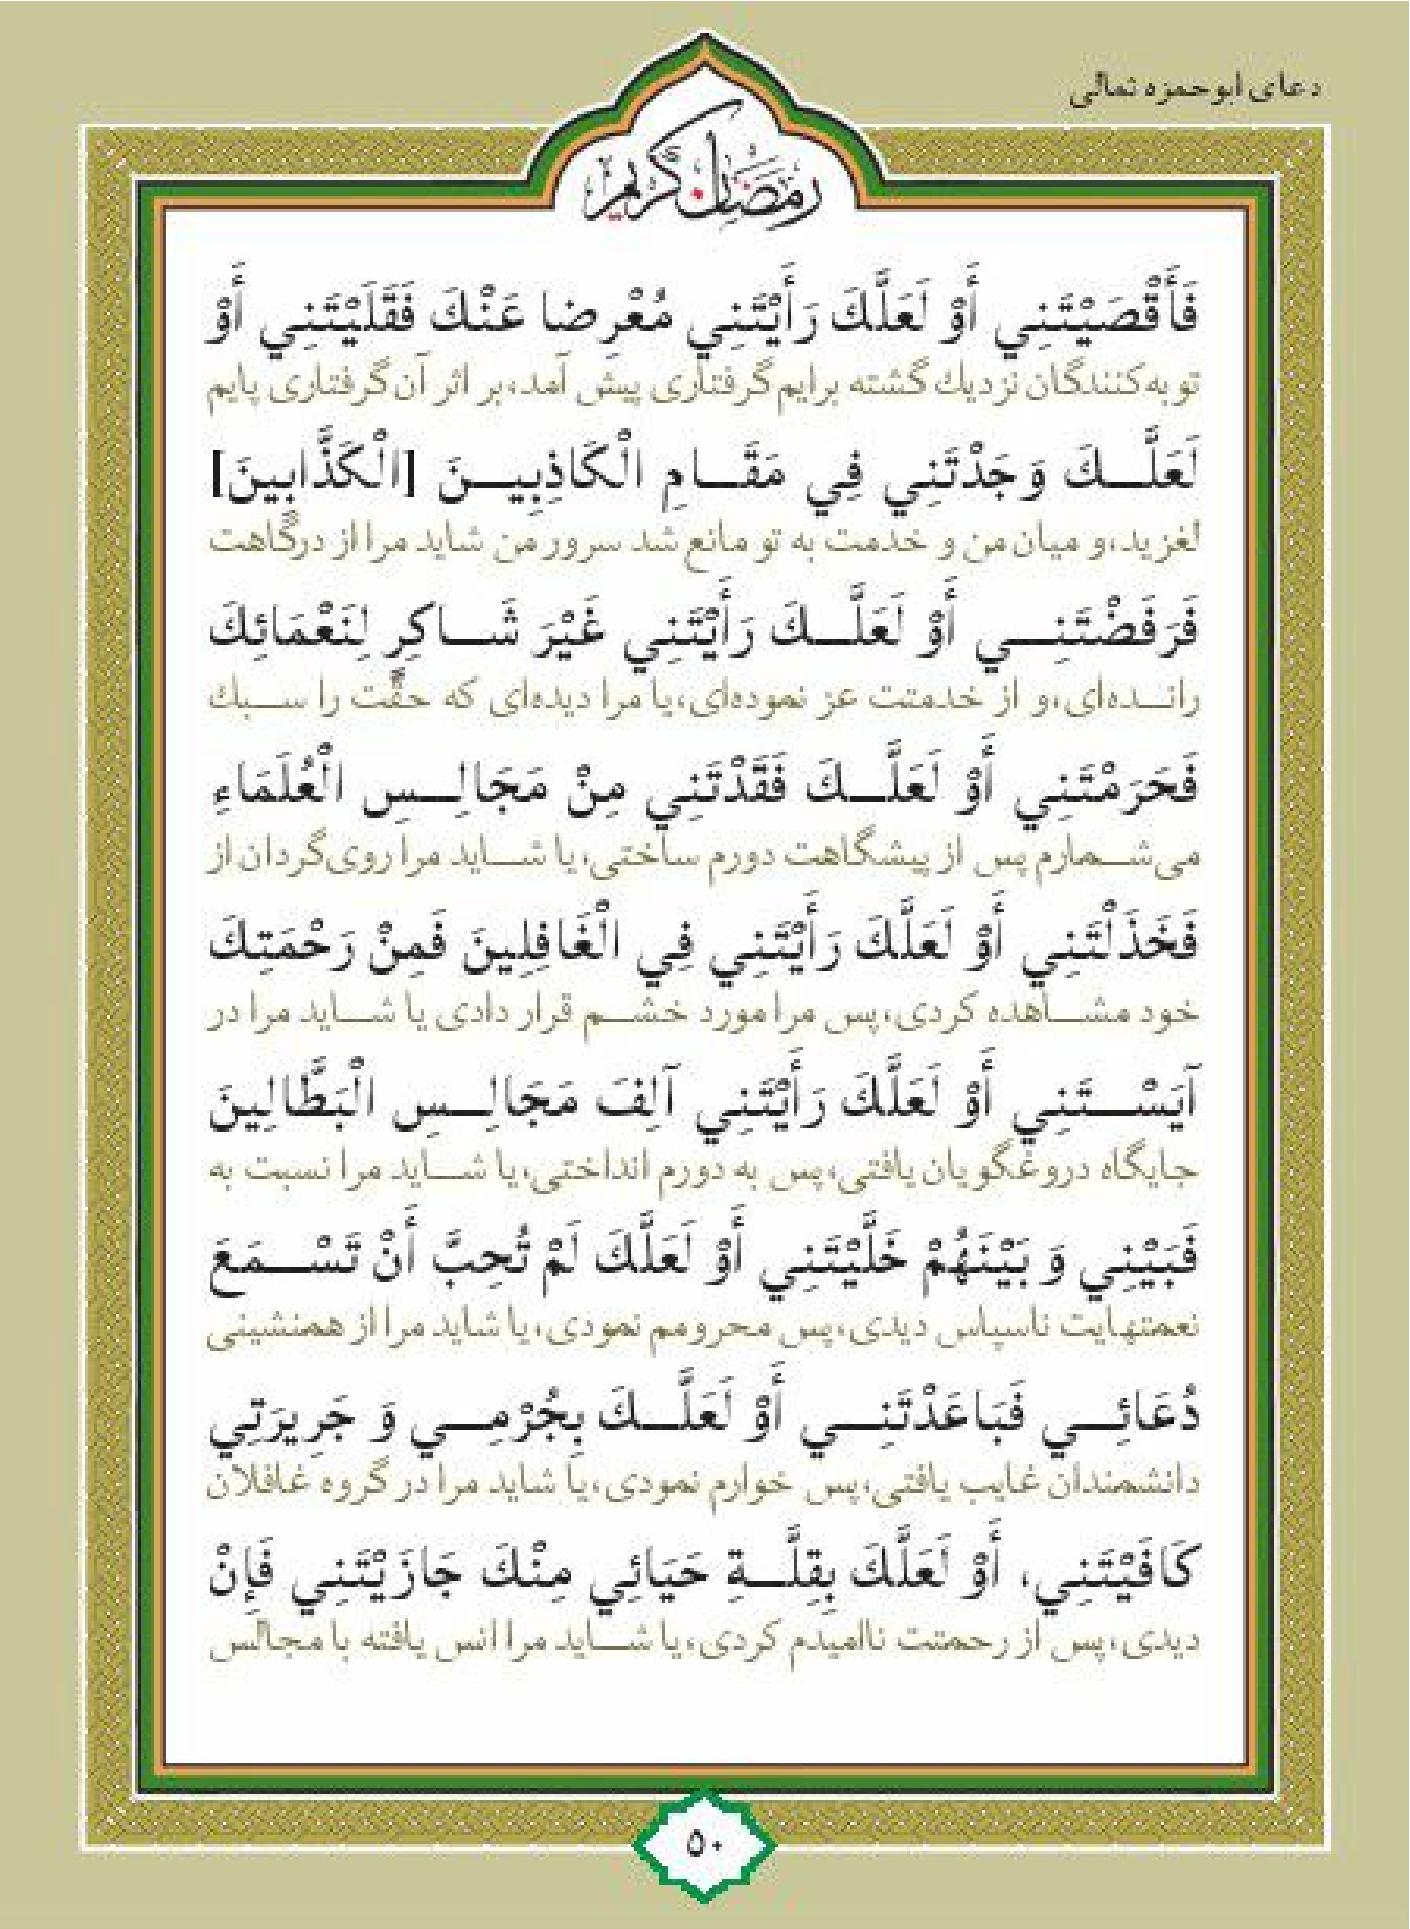 دعای ابوحمزه ثمالی
رمضان كريم
فَأَقْصَيْتَنِي أَوْ لَعَلَّكَ رَأَيْتَنِي مُعْرِضا عَنْكَ فَقَلَيْتَنِي أَوْ
توبه‌کنندگان نزدیك گشته برایم گرفتاری پیش آمد،بر اثر آن گرفتاری پایم
لَعَلَّكَ وَجَدْتَنِي فِي مَقَامِ الْكَاذِبِينَ [الْكَذَّابِينَ]
لغزید،و میان من و خدمت به تو مانع شد سرور من شاید مرا از درگاهت
فَرَفَضْتَنِي أَوْ لَعَلَّكَ رَأَيْتَنِي غَيْرَ شَاكِرٍ لِنَعْمَائِكَ
رانده‌ای،و از خدمتت عز نموده‌ای،یا مرا دیده‌ای که حقّت را سبك
فَحَرَمْتَنِي أَوْ لَعَلَّكَ فَقَدْتَنِي مِنْ مَجَالِسِ الْعُلَمَاءِ
می‌شمارم پس از پیشگاهت دورم ساختی،یا شاید مرا روی‌گردان از
فَخَذَلْتَنِي أَوْ لَعَلَّكَ رَأَيْتَنِي فِي الْغَافِلِينَ فَمِنْ رَحْمَتِكَ
خود مشاهده کردی،پس مرا مورد خشم قرار دادی یا شاید مرا در
آيَسْتَنِي أَوْ لَعَلَّكَ رَأَيْتَنِي آلِفَ مَجَالِسِ الْبَطَّالِينَ
جایگاه دروغگویان یافتی،پس به دورم انداختی،یا شاید مرا نسبت به
فَبَيْنِي وَ بَيْنَهُمْ خَلَّيْتَنِي أَوْ لَعَلَّكَ لَمْ تُحِبَّ أَنْ تَسْمَعَ
نعمتهایت ناسپاس دیدی،پس محرومم نمودی،یا شاید مرا از همنشینی
دُعَائِي فَبَاعَدْتَنِي أَوْ لَعَلَّكَ بِجُرْمِي وَ جَرِيرَتِي
دانشمندان غایب یافتی،پس خوارم نمودی،یا شاید مرا در گروه غافلان
كَافَيْتَنِي، أَوْ لَعَلَّكَ بِقِلَّةِ حَيَائِي مِنْكَ جَازَيْتَنِي فَإِنْ
دیدی،پس از رحمتت ناامیدم کردی،یا شاید مرا انس یافته با مجالس
۵۰